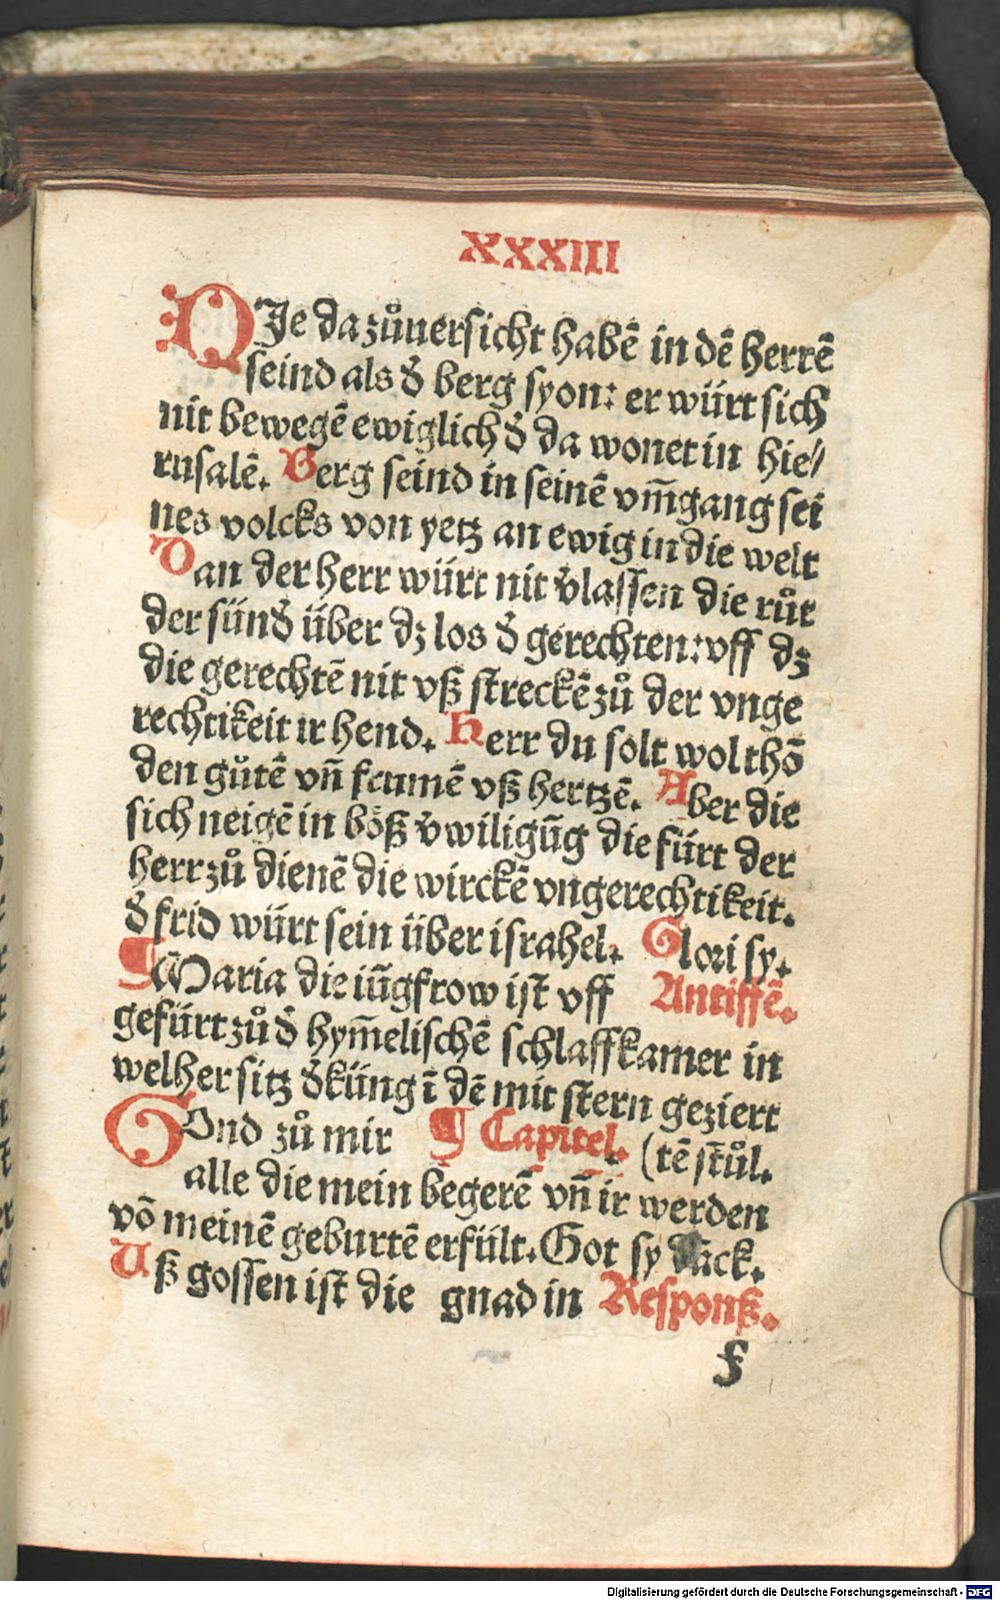 XXXIII
DJe da zůuersicht habē in dē herrē
seind als d̕ berg syon: er würt sich
nit bewegē ewiglich d̕ da wonet in hie⸗
rusalē. Berg seind in seinē vm̄gang sei
nes volcks von yetz an ewig in die welt
Dan der herr würt nit v̕lassen die růt
der sünd̕ über dz los d̕ gerechten: vff dz
die gerechtē nit vß streckē zů der vnge
rechtikeit ir hend. Herr du solt wol thō
den gůtē vn̄ frumē vß hertzē. Aber die
sich neigē in böß v̕wiligūg die fürt der
herr zů dienē die wirckē vngerechtikeit.
d̕ frid würt sein über israhel. Glori sy.
¶ Maria die iūgfrow ist vff Antiffē.
gefürt zů d̕ hym̄elischē schlaffkamer in
welher sitz d̕ küng ī dē mit stern geziert
GOnd zů mir ¶ Capitel. (tē stůl.
alle die mein begerē vn̄ ir werden
vō meinē geburtē erfült. Got sy dāck.
Uß gossen ist die gnad in Responß.
f
Digitalisierung gefördert durch die Deutsche Forschungsgemeinschaft - DFG